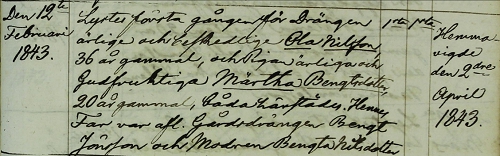 Den 12te Februari 1843.
Lystes första gången för Drängen
ärlige och beskedlige Ola Nilsson
36 år gammal, och Pigan ärliga och
Gudfruktiga Märtha Bengtsdotter,
20 år gammal, båda härstädes. Hennes
Far var afl. Gårdsdrängen Bengt
Jönsson och Modren Bengta Nilsdotter
Hemma
vigde
den 2
April
1843.